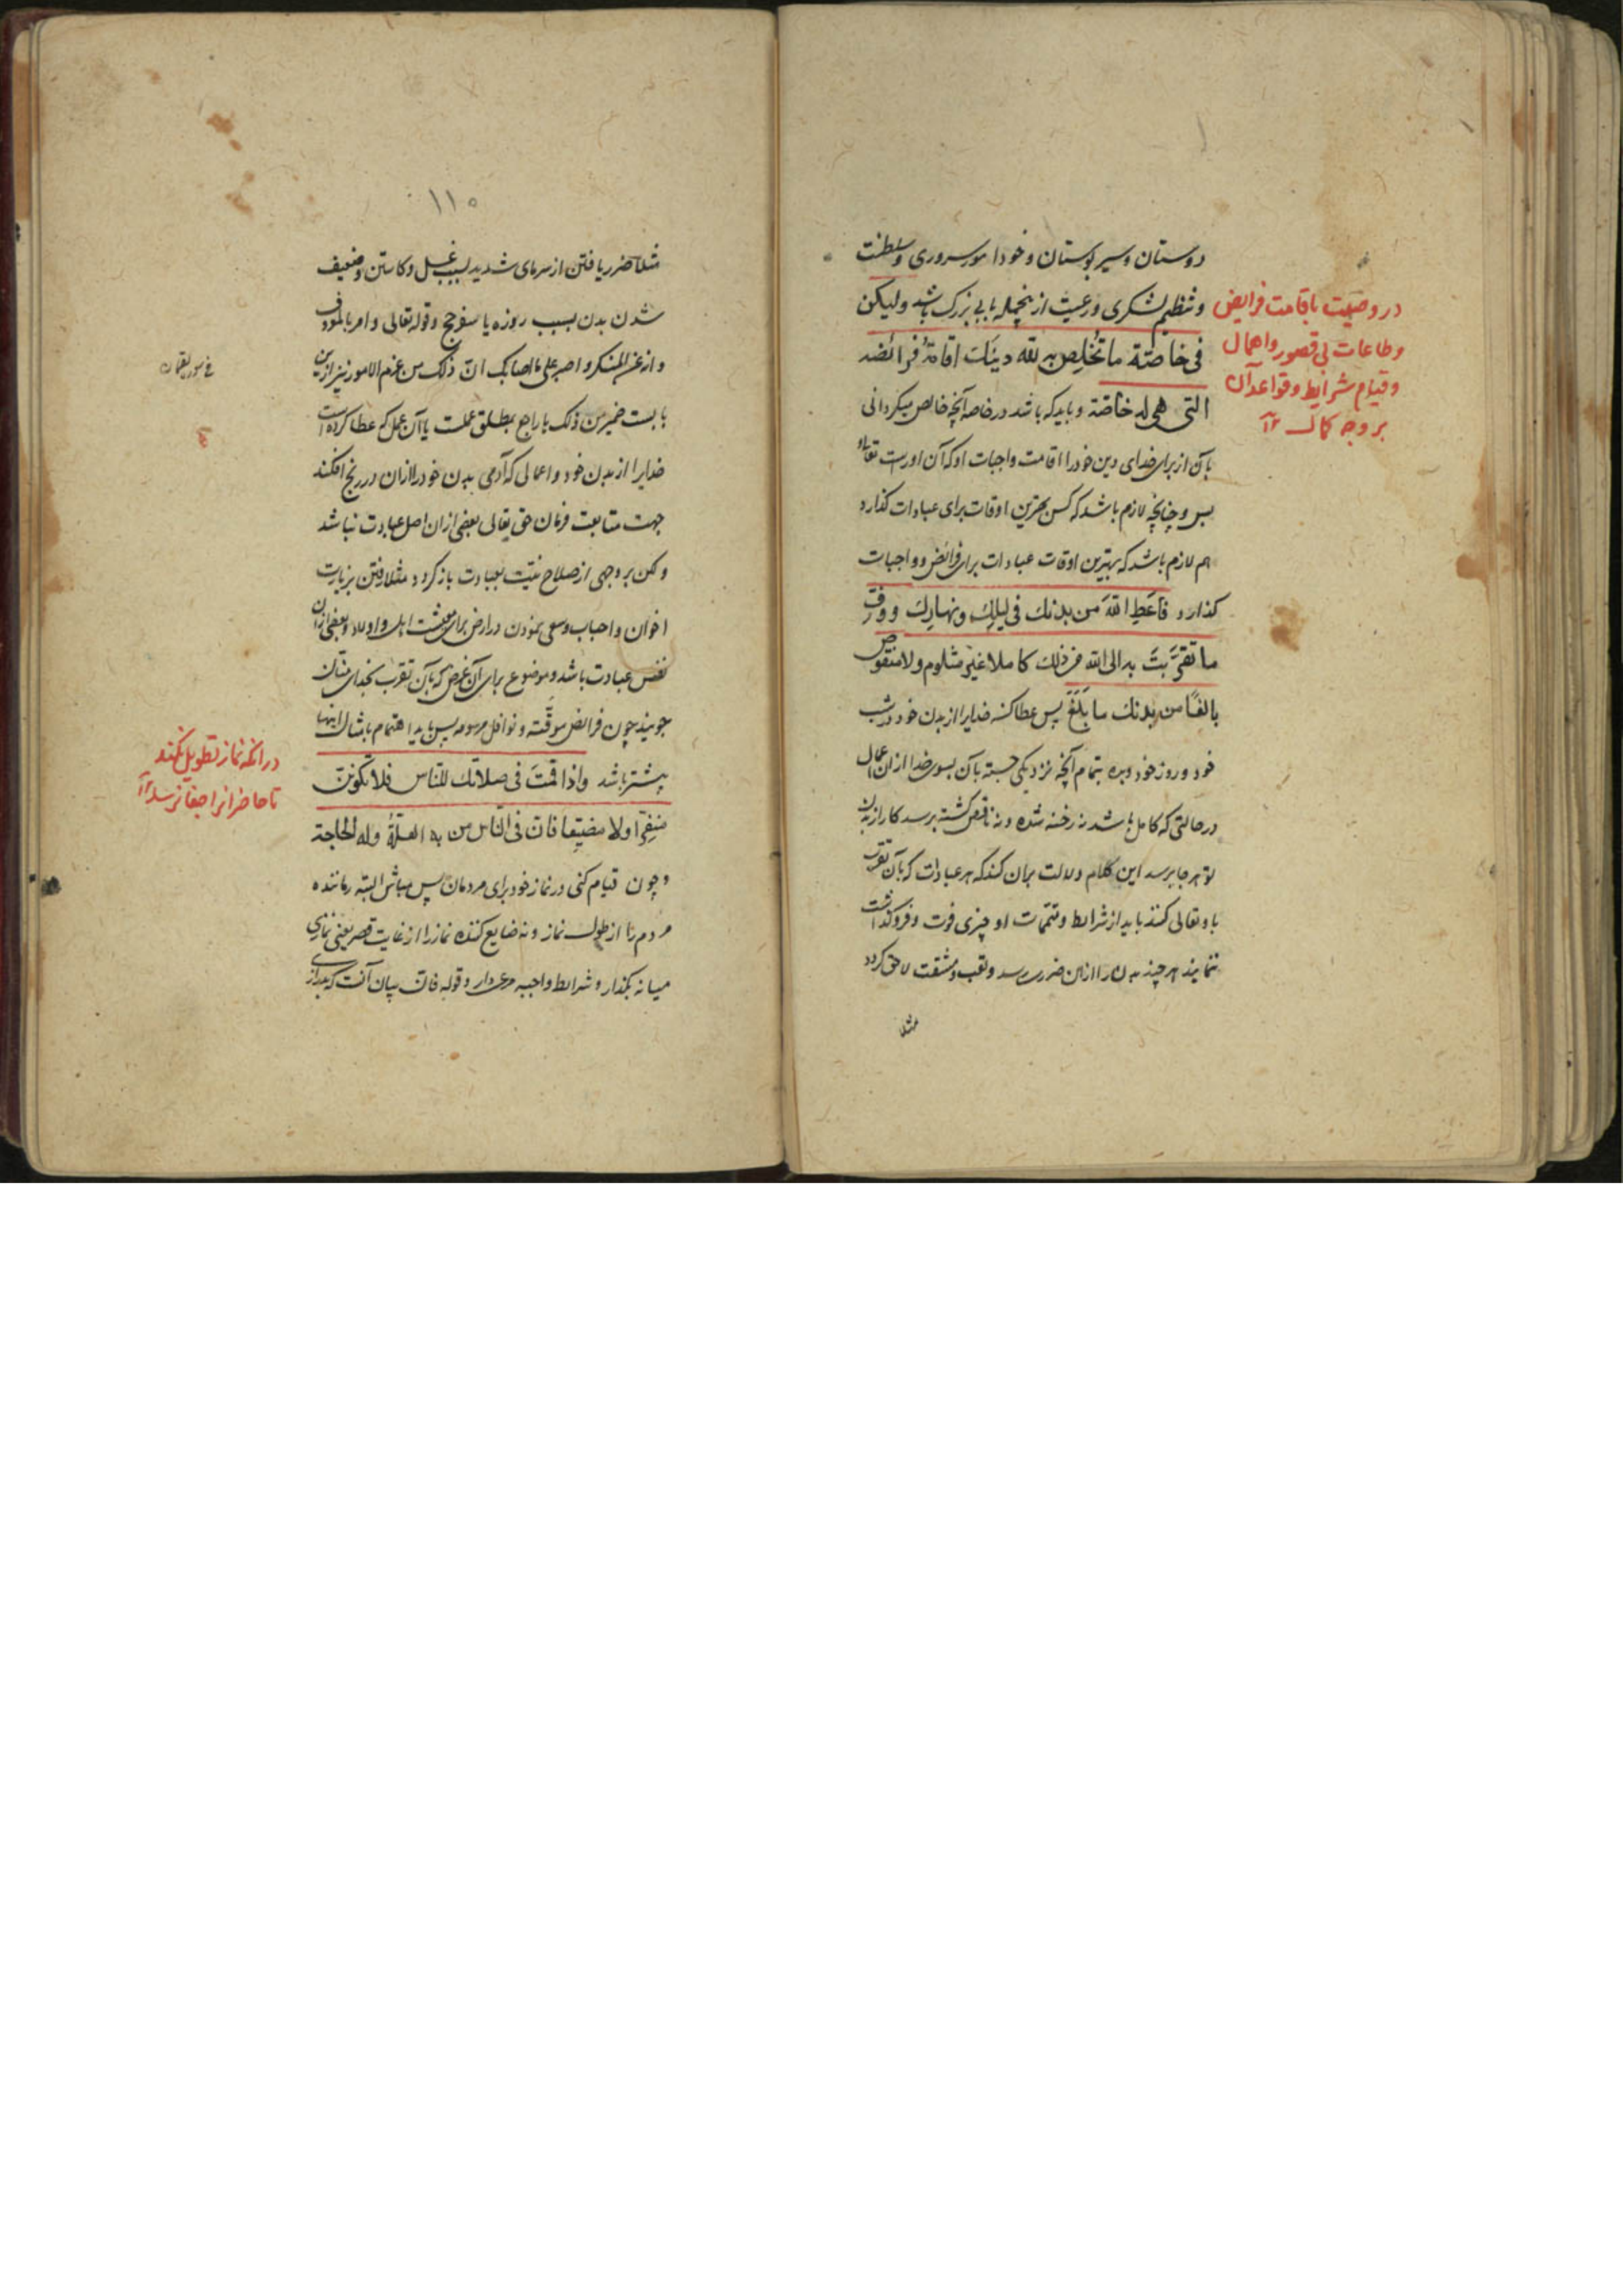 دوستان و سیر بوستان و خود امور سروری و سلطنت
و تنظیم لشکری و رعیت ازینجمله بابی بزرک باشد ولیکن
فی خاصّة ما تُخلِص به لله دینَک اقامةُ فرائضه
التی هی له خاصّة و باید که باشد در خاصه آنچه خالص میکردانی
بآن از برای خدای دین خود را اقامت واجبات او که آن اوراست تعالی
پس و چنانچه لازم باشد که کس بهترین اوقات برای عبادات کذارد
هم لازم باشد که بهترین اوقات عبادات برای فرائض و واجبات
کذارد فاَعطِ اللهَ من بدنک فی لیلِک ونهارِک ووفِّ
ما تقرَّبتَ به الی الله من ذلک کاملا غیر مثلوم ولا منقوص
بالغًا من بدنک ما بَلَغَ پس عطا کن خدایرا از بدن خود در شب
خود و روز خود و بده بتمام آنچه نزدیکی جسته بآن بسوی خدا ازان اعمال
در حالتی که کامل باشد نه رخنه شده و نه ناقص کشته برسد کار از بدن
تو هر جا برسد این کلام دلالت بران کند که هر عبادت که بآن تقرب
باو تعالی کنند باید از شرائط و تتمّات او چیزی فوت و فروکذاشت
ننمایند هر چند بدن را ازان ضرر رسد و تعب و مشقت لاحق کردد
مثلا
در وصیت باقامت فرایض
و طاعات بی قصور و اهمال
و قیام شرایط و قواعد آن
بر وجه کمال
۱۱۰
مثلا ضرر یافتن از سرمای شدید بسبب غسل و کاستن و ضعیف
شدن بدن بسبب روزه یا سفر حج و قوله تعالی وامر بالمعروف
وانه عن المنکر واصبر علی ما اصابک انّ ذلک من عزم الامور نیز ازین
بابست ضمیر من ذلک یا راجع بمطلق عملست یا آن عمل که عطا کرده است
خدایرا از بدن خود و اعمالی که آدمی بدن خود را ازان در رنج افکند
جهت متابعت فرمان حق تعالی بعضی ازان اصل عبادت نباشد
ولکن بر وجهی از صلاح نیّت بعبادت باز کردد مثلا رفتن بزیارت
اخوان و احباب و سعی نمودن در ارض برای معیشت اهل و اولاد و بعضی ازان
نفس عبادت باشد و موضوع برای آن غرض که بآن تقرب بخدای منّان
جویند چون فرائض موقّته و نوافل مرسومه پس باید اهتمام بامثال اینها
بیشتر باشد واذا قمتَ فی صلاتک للنّاس فلا تکوننّ
منفِّرا ولا مضیِّعا فانّ فی النّاس من به العلّةُ وله الحاجة
وچون قیام کنی در نماز خود برای مردمان پس مباش البته رماننده
مردم را از طول نماز و نه ضایع کننده نماز را از غایت قصر یعنی نمازی
میانه بکذار و شرائط واجبه مرعی دار و قوله فانّ بیان آنست که بعد از
فی سورة لقمان
در آنکه نماز تطویل نکند
تا حاضرانرا جفا نرسد